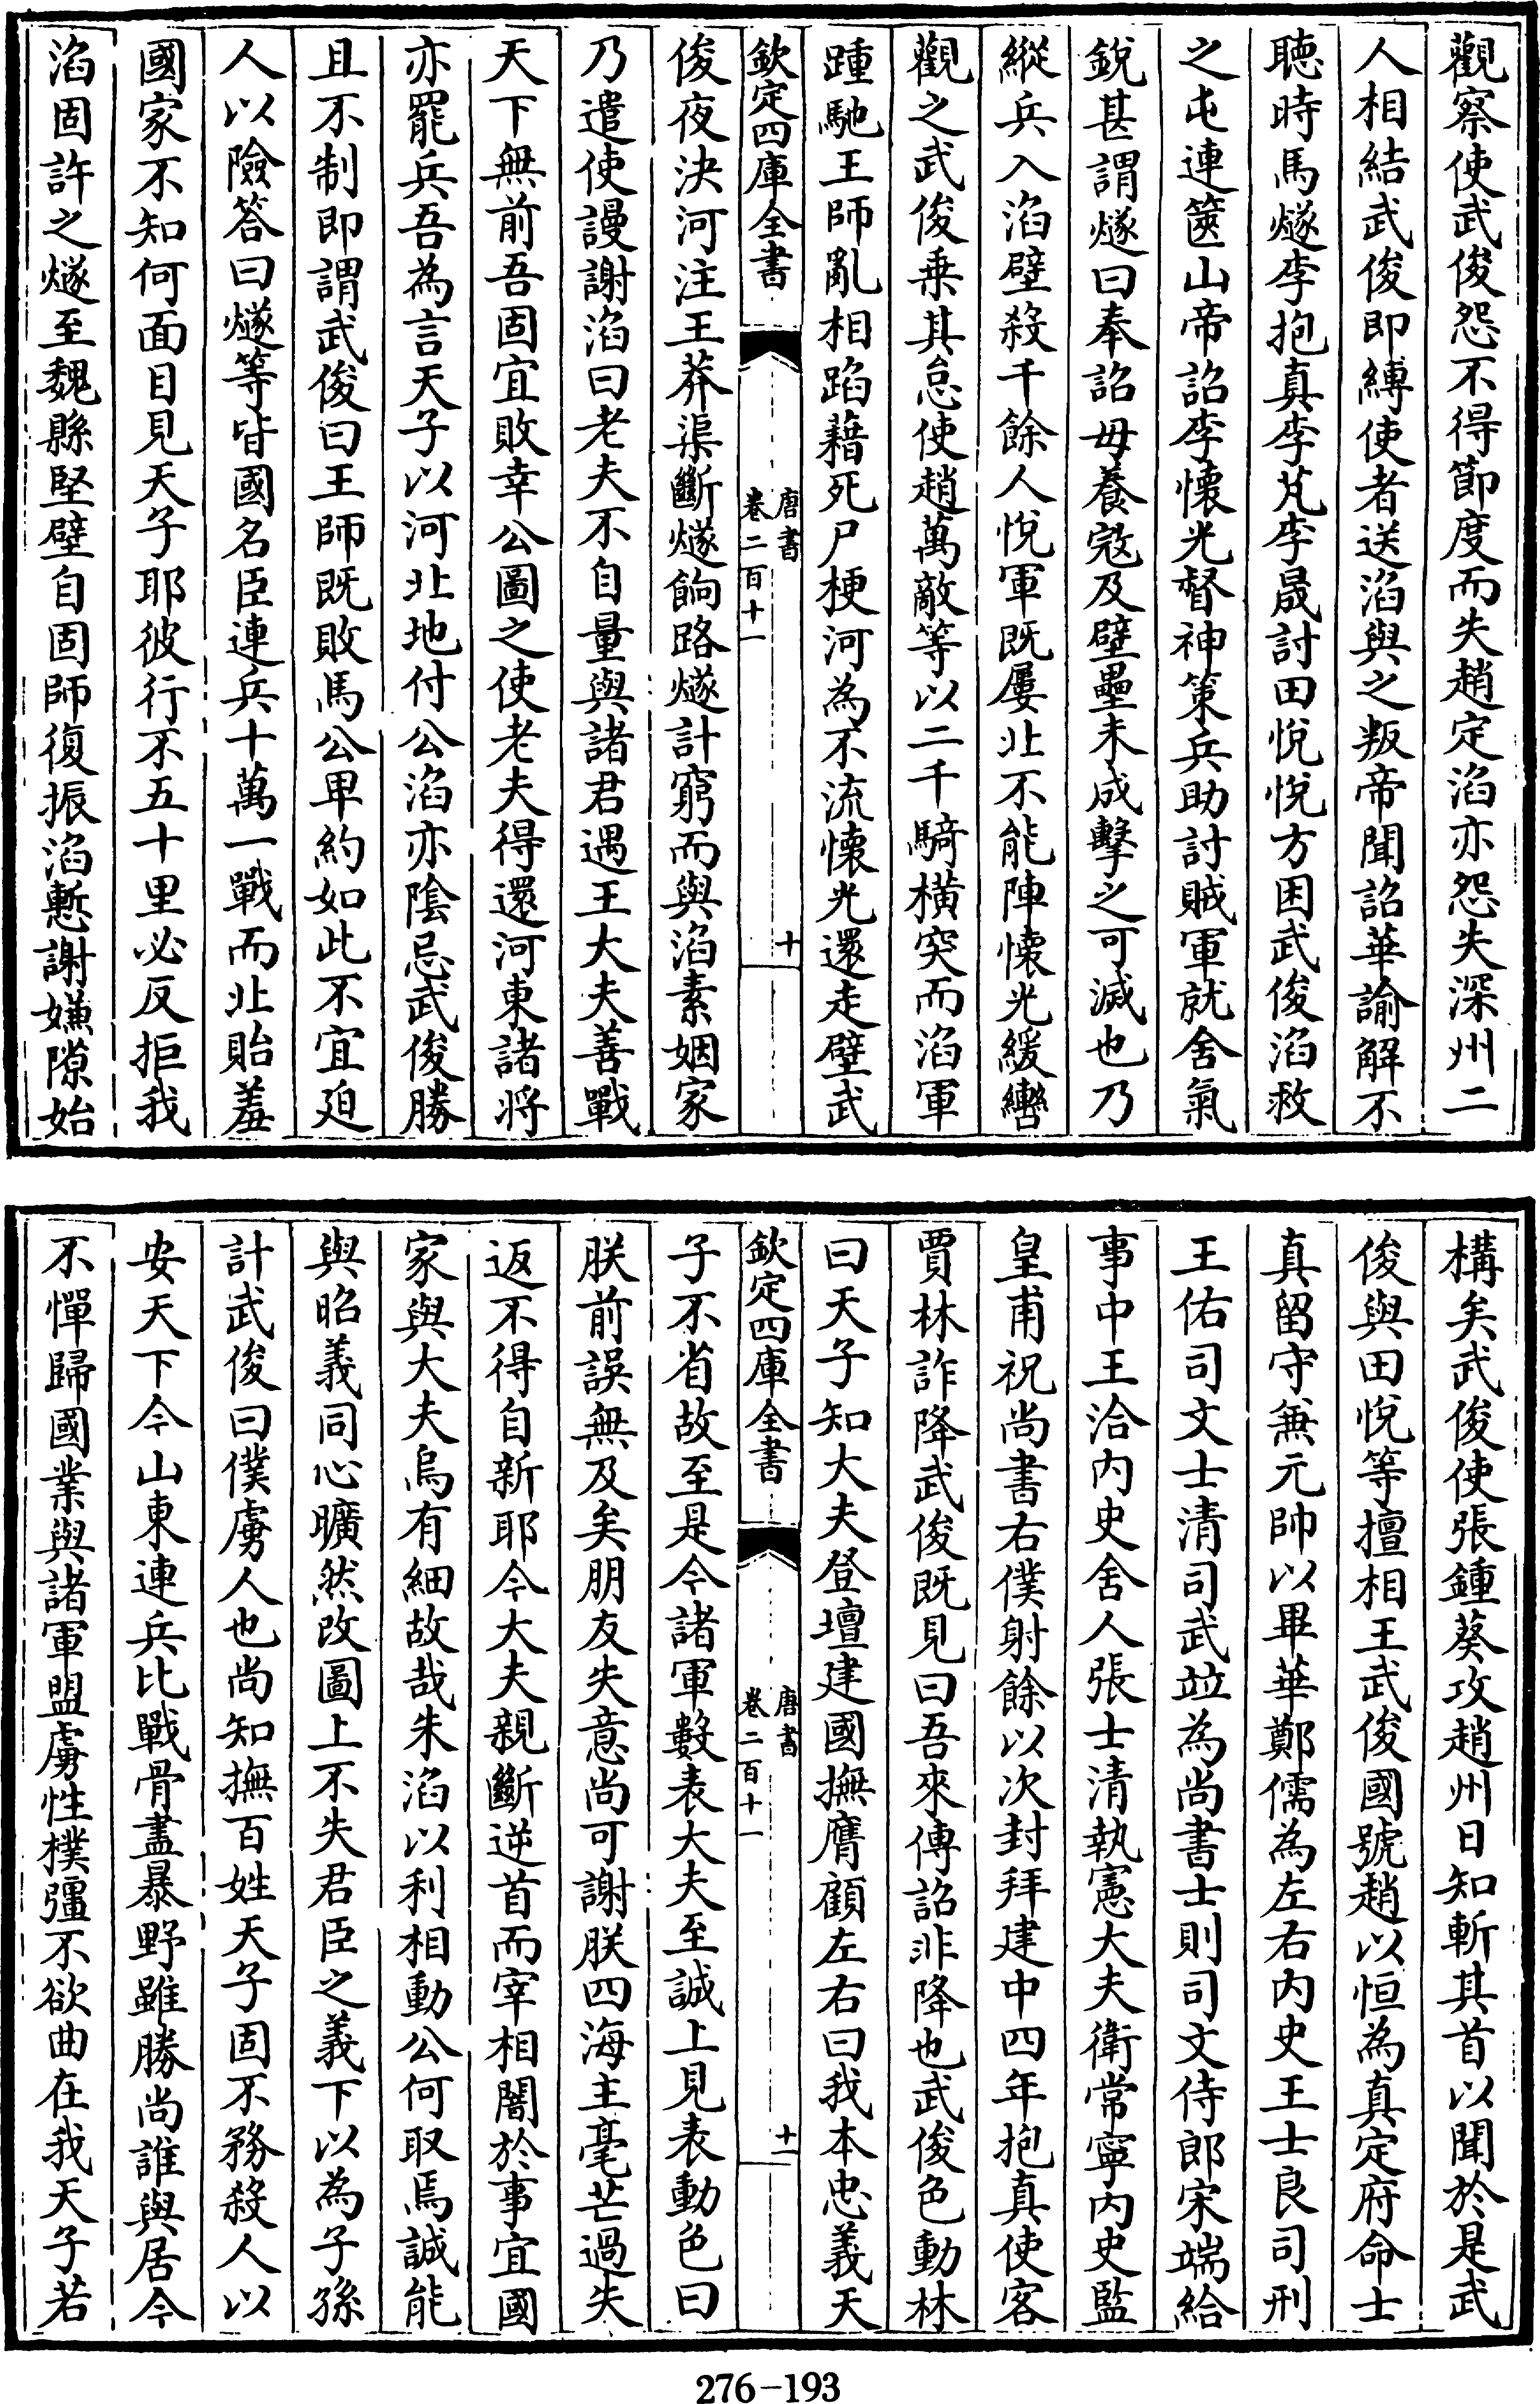 觀察使武俊怨不得節度而失趙定滔亦怨失深州二
人相結武俊即縛使者送滔與之叛帝聞詔華諭解不
聽時馬燧李抱真李芃李晟討田悅悅方困武俊滔救
之屯連篋山帝詔李懷光督神策兵助討賊軍就舍氣
銳甚謂燧曰奉詔毋養寇及壁壘未成擊之可滅也乃
縱兵入滔壁殺千餘人悅軍既屢北不能陣懷光緩轡
觀之武俊乗其怠使趙萬敵等以二千騎橫突而滔軍
踵馳王師亂相蹈藉死尸梗河為不流懷光還走壁武
欽定四庫全書
唐書
卷二百十一
十
俊夜決河注王莽渠斷燧餉路燧計窮而與滔素姻家
乃遣使謾謝滔曰老夫不自量與諸君遇王大夫善戰
天下無前吾固宜敗幸公圖之使老夫得還河東諸將
亦罷兵吾為言天子以河北地付公滔亦陰忌武俊勝
且不制即謂武俊曰王師既敗馬公卑約如此不宜廹
人以險答曰燧等皆國名臣連兵十萬一戰而北貽羞
國家不知何面目見天子耶彼行不五十里必反拒我
滔固許之燧至魏縣堅壁自固師復振滔慙謝嫌隙始
構矣武俊使張鍾葵攻趙州日知斬其首以聞於是武
俊與田悅等擅相王武俊國號趙以恒為真定府命士
真留守兼元帥以畢華鄭儒為左右内史王士良司刑
王佑司文士清司武竝為尚書士則司文侍郎宋端給
事中王洽内史舍人張士清執憲大夫衛常寧内史監
皇甫祝尚書右僕射餘以次封拜建中四年抱真使客
賈林詐降武俊既見曰吾來傳詔非降也武俊色動林
曰天子知大夫登壇建國撫膺顧左右曰我本忠義天
欽定四庫全書
唐書
卷二百十一
十一
子不省故至是今諸軍數表大夫至誠上見表動色曰
朕前誤無及矣朋友失意尚可謝朕四海主毫芒過失
返不得自新耶今大夫親斷逆首而宰相闇於事宜國
家與大夫烏有細故哉朱滔以利相動公何取焉誠能
與昭義同心曠然改圖上不失君臣之義下以為子孫
計武俊曰僕虜人也尚知撫百姓天子固不務殺人以
安天下今山東連兵比戰骨盡暴野雖勝尚誰與居今
不憚歸國業與諸軍盟虜性樸彊不欲曲在我天子若
276-193